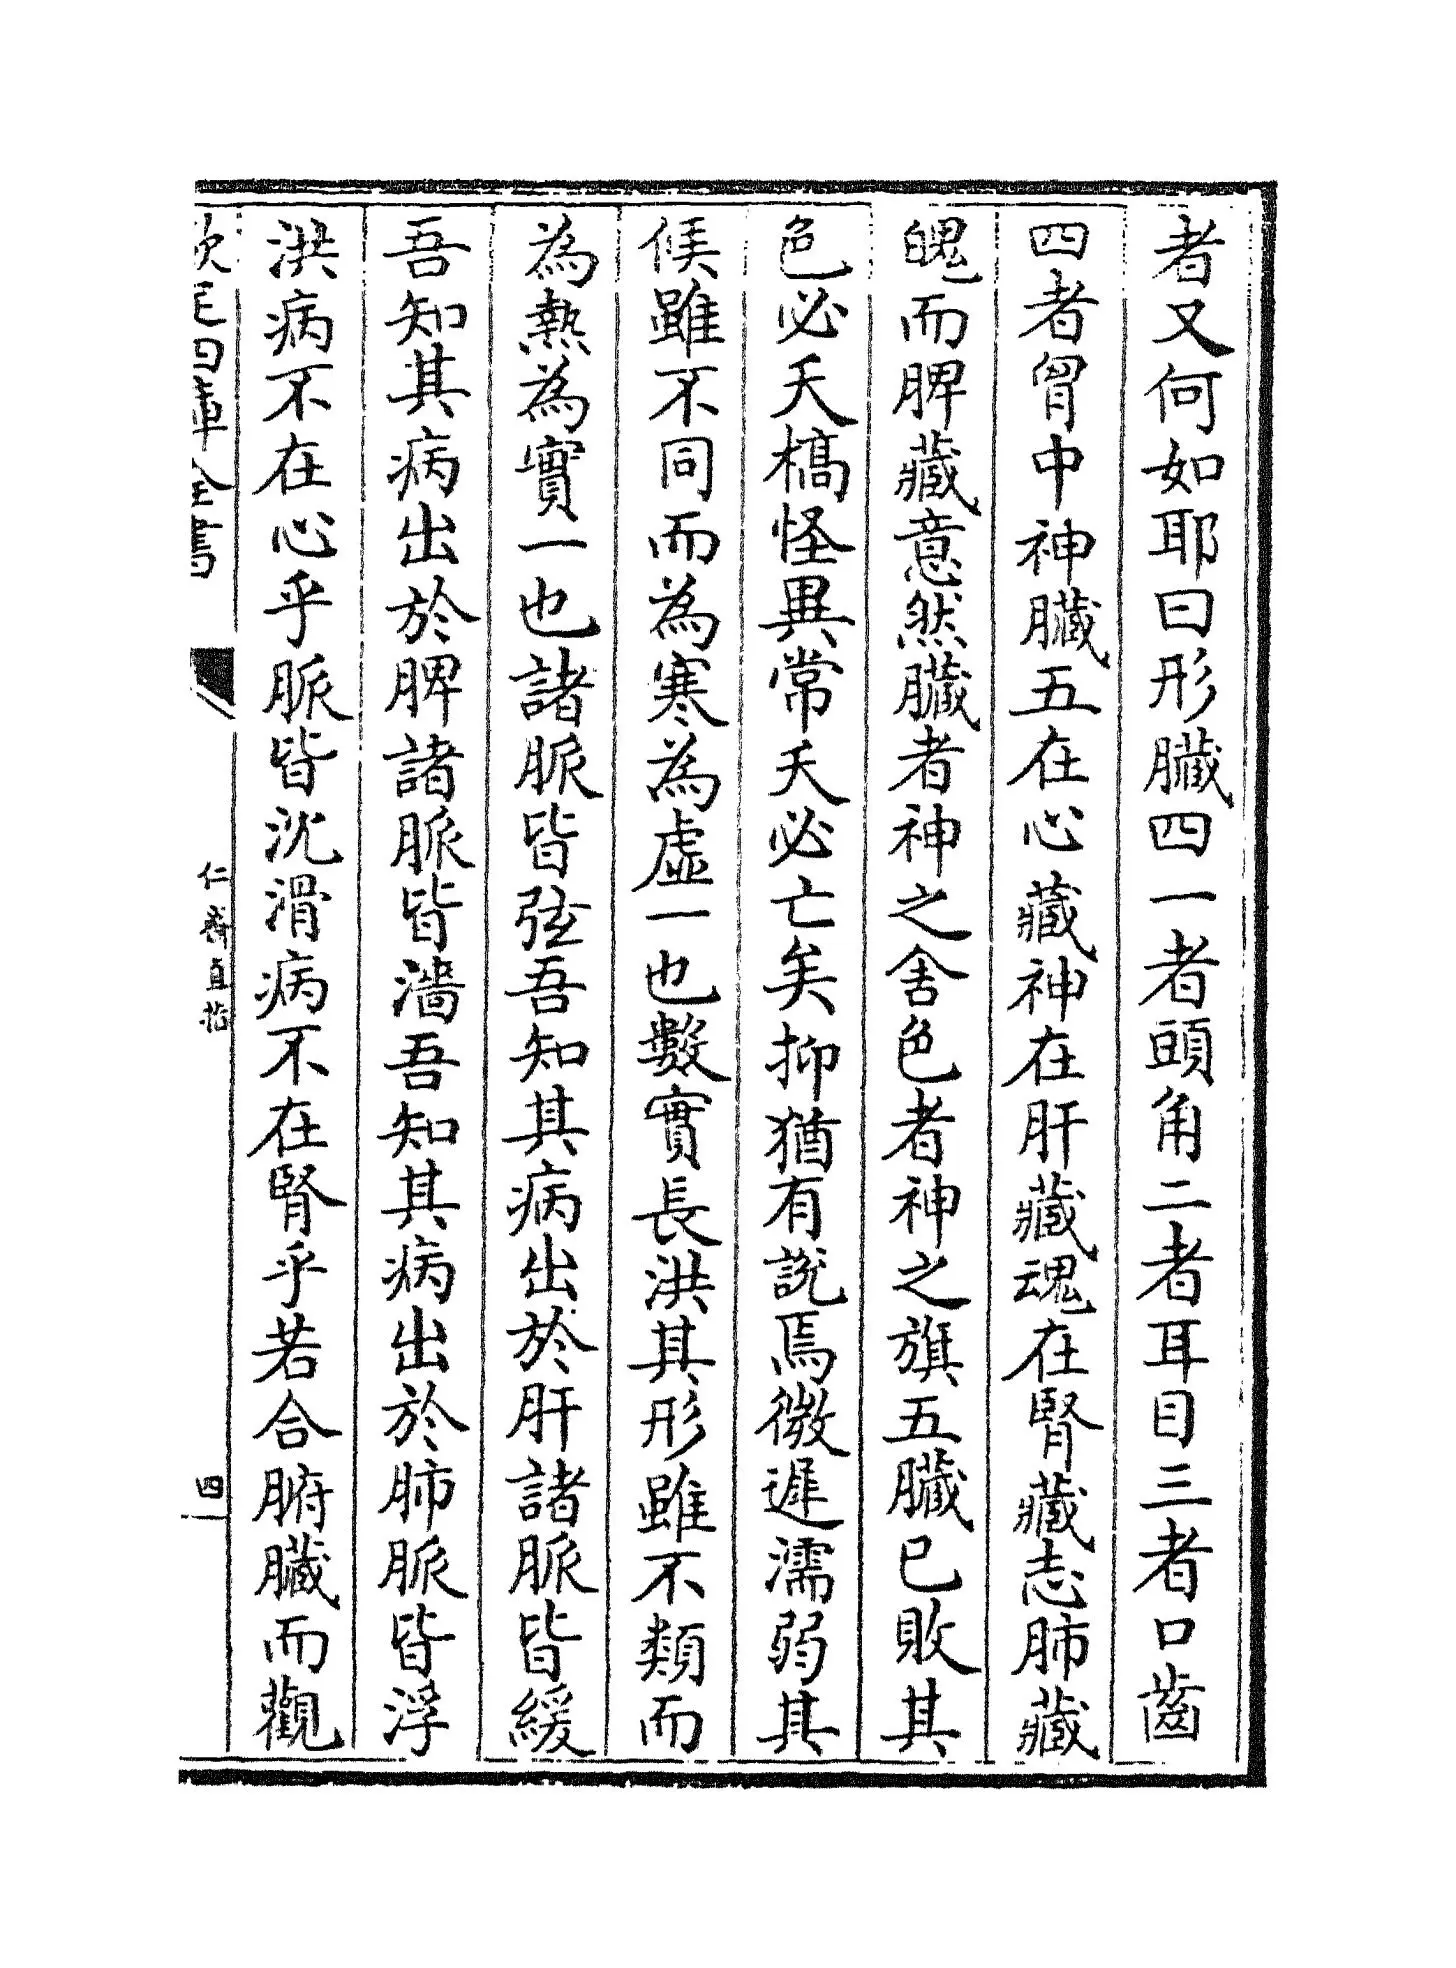 者又何如耶曰形臓四一者頭角二者耳目三者口齒
四者胷中神臓五在心藏神在肝藏魂在腎藏志肺藏
魄而脾藏意然臓者神之舍色者神之旗五臓已敗其
色必夭槁怪異常夭必亡矣抑猶有説焉微遲濡弱其
候雖不同而為寒為虚一也數實長洪其形雖不類而
為熱為實一也諸脈皆弦吾知其病出於肝諸脈皆緩
吾知其病出於脾諸脈皆濇吾知其病出於肺脈皆浮
洪病不在心乎脈皆沈滑病不在腎乎若合腑臓而觀
欽定四庫全書
仁齋直指
四